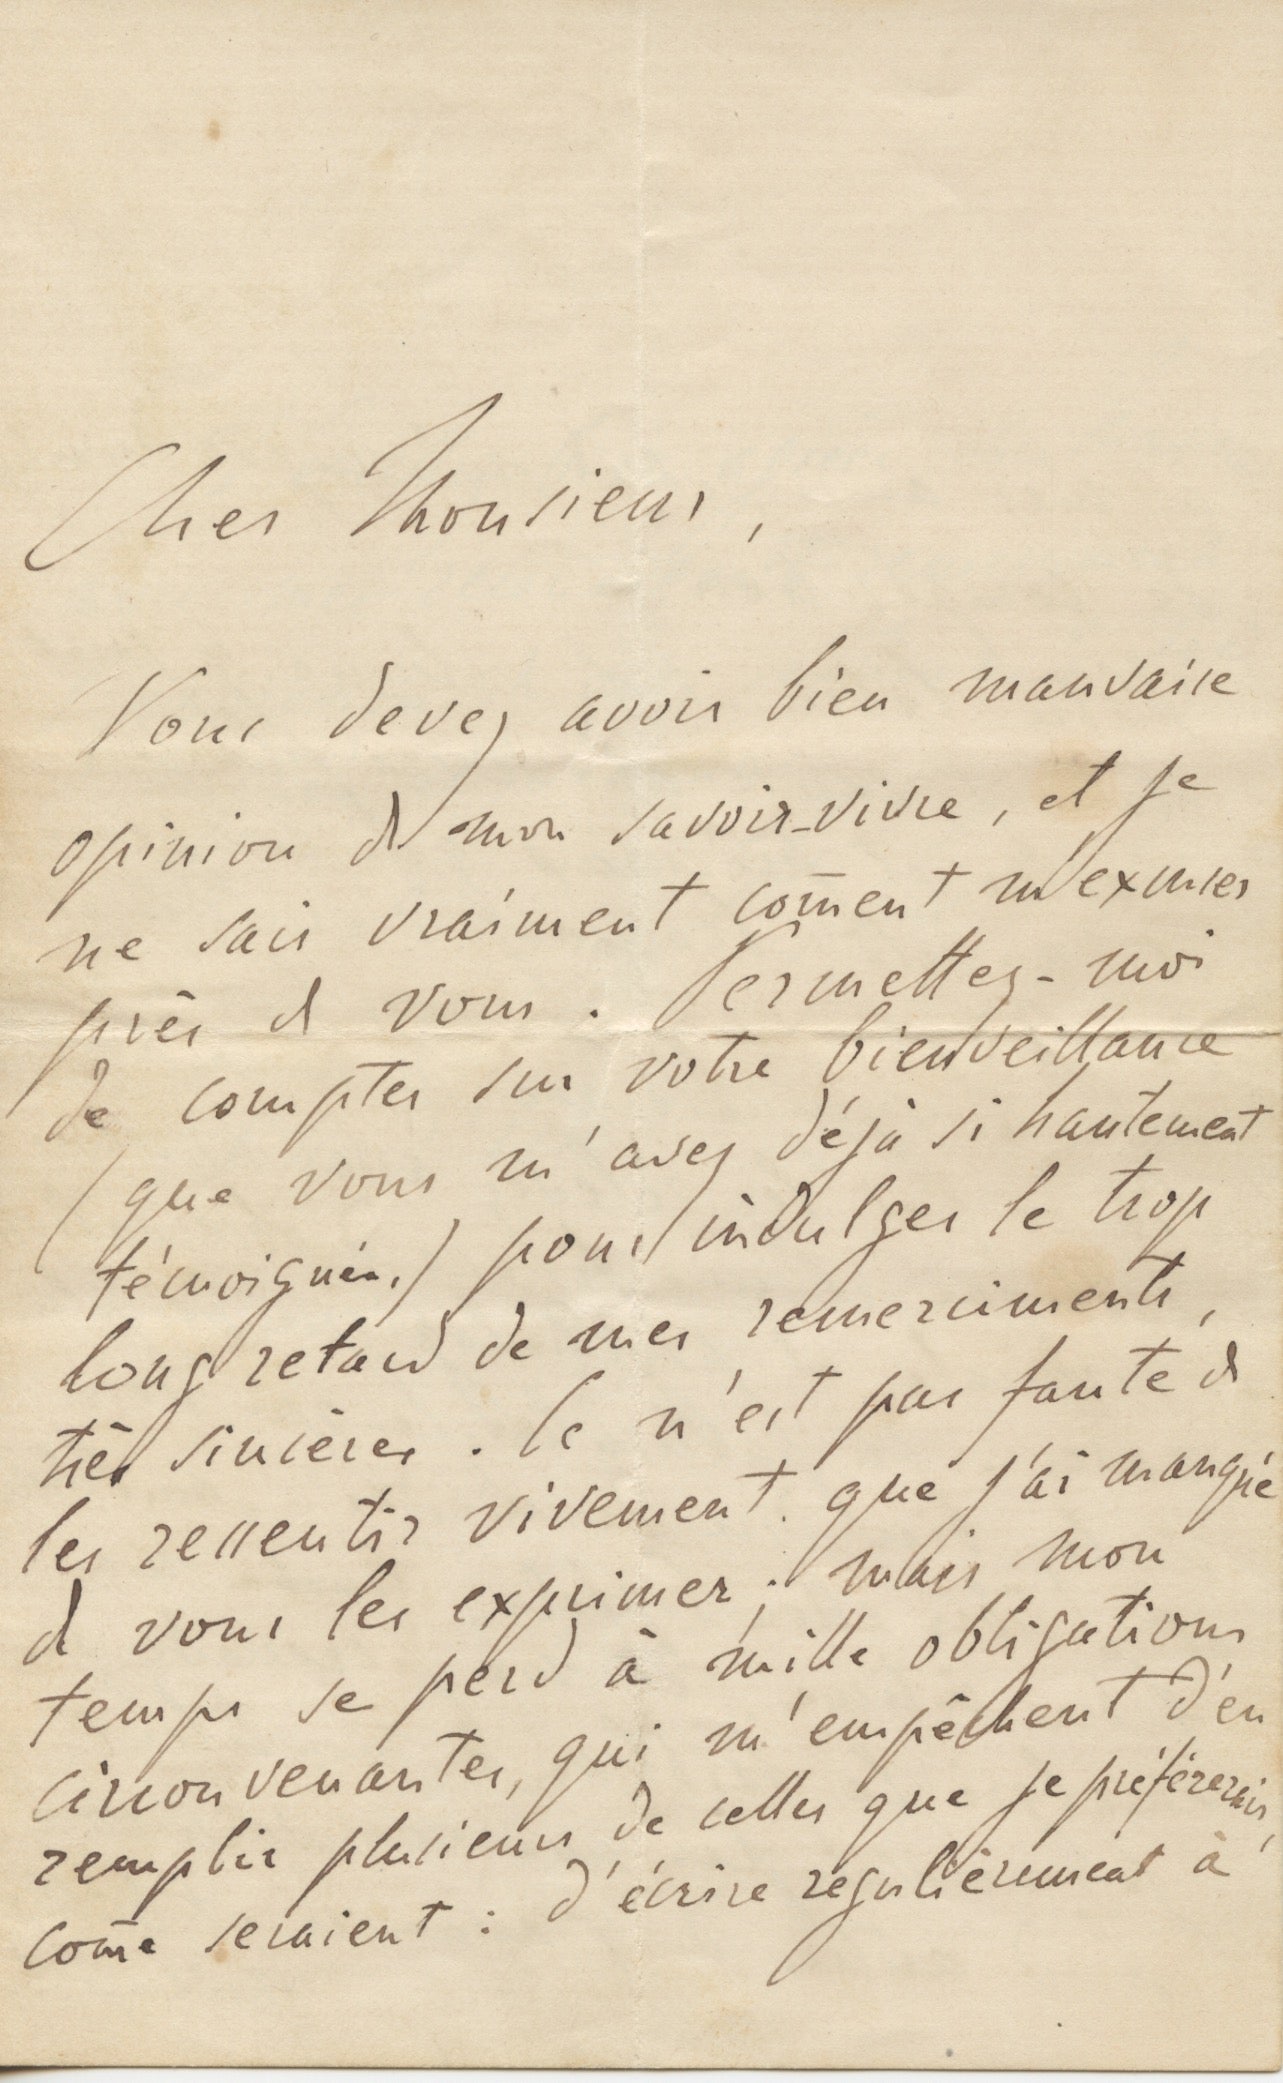 Cher Monsieur,
Vous devez avoir bien mauvaise
opinion de mon savoir-vivre, et je
ne sais vraiment com̄ent m'excuser
près de vous. Permettez-moi
de compter sur votre bienveillance
(que vous m'avez déjà si hautement
témoignée,) pour indulger le trop
long retard de mes remerciments,
très sincères. Ce n'est pas faute de
les ressentir vivement que j'ai manqué
de vous les exprimer; mais mon
temps se perd à mille obligations
circonvenantes, qui m'empêchent d'en
remplir plusieurs de celles que je préférerais,
com̄e seraient: d'écrire regulièrement à